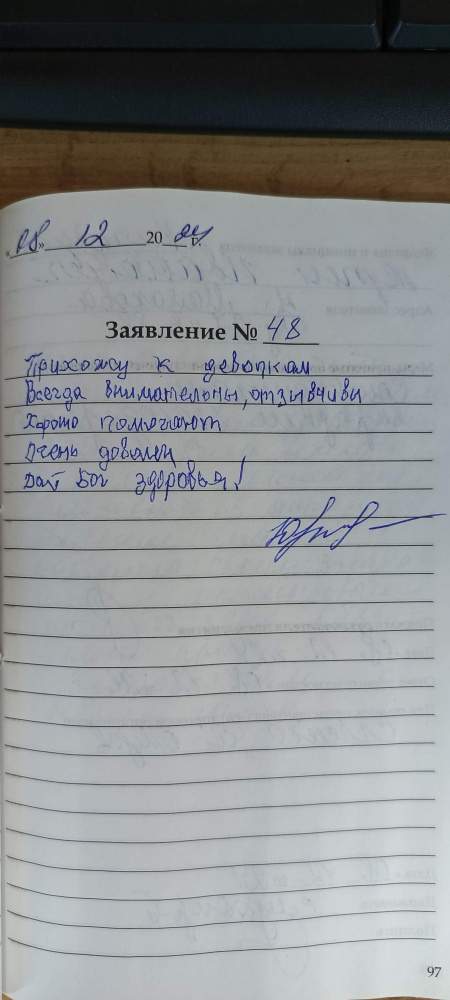 «08» 12 2024 г.
Заявление № 48
Прихожу к девочкам
Всегда внимательны, отзывчивы
Хорошо помогают
Очень доволен
Дай Бог здоровья!
97